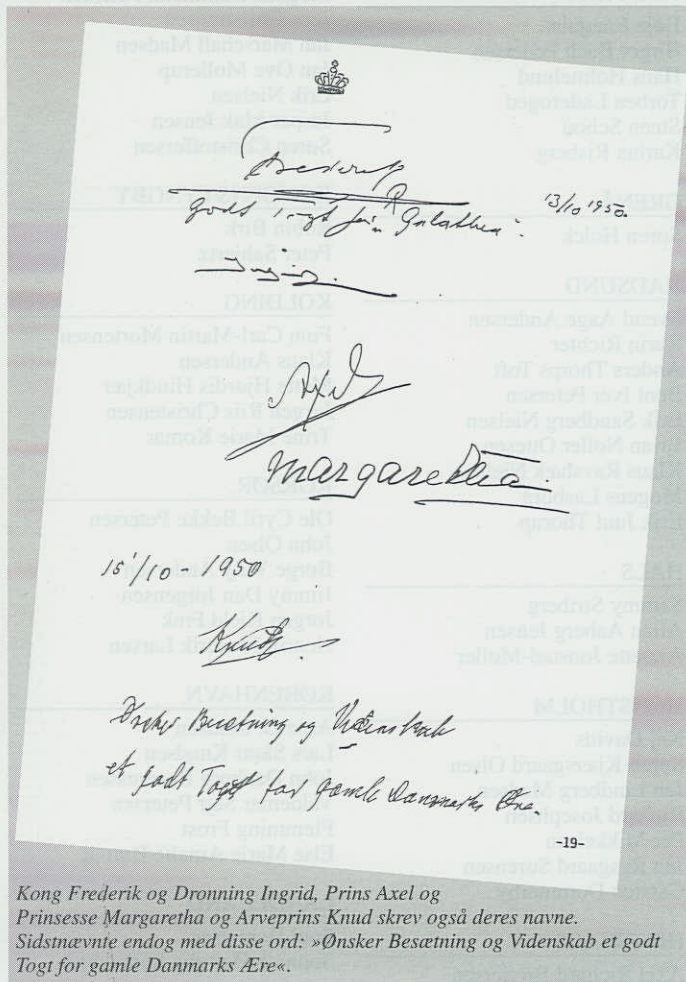 Frederik R
13/10 1950.
godt togt for „Galathea".
Ingrid.
Axel
Margaretha.
15'/10 - 1950
Knud
Ønsker Besætning og Videnskab
et godt Togt for gamle Danmarks Ære.
-19-
Kong Frederik og Dronning Ingrid, Prins Axel og
Prinsesse Margaretha og Arveprins Knud skrev også deres navne.
Sidstnævnte endog med disse ord: »Ønsker Besætning og Videnskab et godt
Togt for gamle Danmarks Ære«.